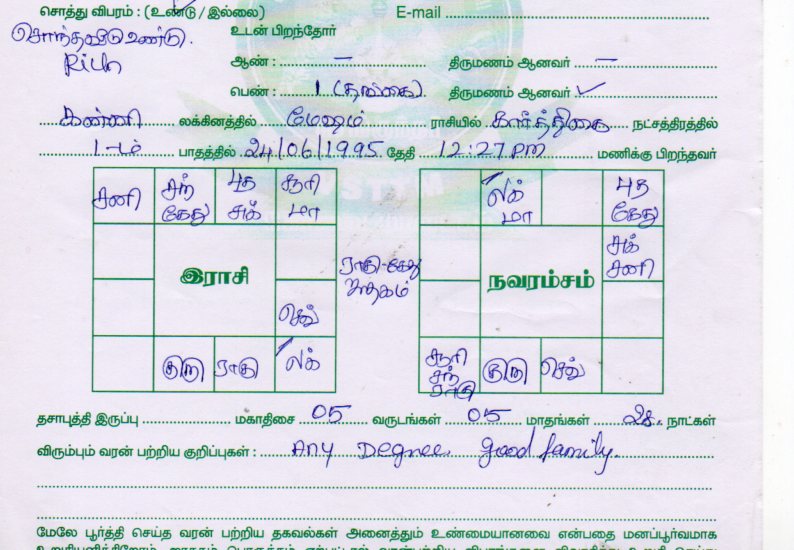 சொத்து விபரம் : (உண்டு / இல்லை) E-mail
சொந்தவீடு உண்டு. உடன் பிறந்தோர்
Rich ஆண் : — திருமணம் ஆனவர் —
பெண் : 1 (தங்கை) திருமணம் ஆனவர் ✓
கன்னி லக்கினத்தில் மேஷம் ராசியில் கார்த்திகை நட்சத்திரத்தில்
1-ம் பாதத்தில் 24/06/1995 தேதி 12:27 pm மணிக்கு பிறந்தவர்
சனி சந் கேது புத சுக் சூரி மா
இராசி
செவ்
குரு ராகு லக்
ராகு-கேது ஜாதகம்
லக் மா புத கேது
நவரம்சம்
சுக் சனி
சூரி சந் ராகு குரு செவ்
தசாபுத்தி இருப்பு மகாதிசை 05 வருடங்கள் 05 மாதங்கள் 28 நாட்கள்
விரும்பும் வரன் பற்றிய குறிப்புகள் : Any Degree. good family.
மேலே பூர்த்தி செய்த வரன் பற்றிய தகவல்கள் அனைத்தும் உண்மையானவை என்பதை மனப்பூர்வமாக